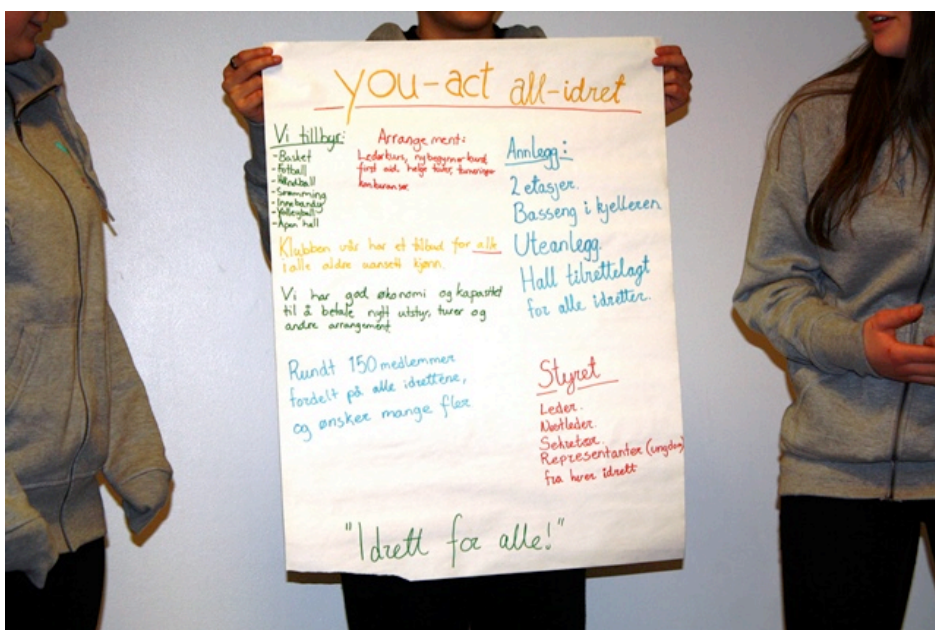 you-act all-idret
Vi tillbyr:
-Basket
-Fotball
-Håndball
-Svømming
-Innebandy
-Volleyball
-Åpen hall
Arrangement:
Lederkurs, nybegynnerkurs
first aid, helge turer, turneringer
konkuranser
Klubben vår har et tilbud for alle
i alle aldre uansett kjønn.
Vi har god økonomi og kapasitet
til å betale nytt utstyr, turer og
andre arrangement
Rundt 150 medlemmer
fordelt på alle idrettene,
og ønsker mange fler
Annlegg:
2 etasjer.
Basseng i kjelleren
Uteanlegg.
Hall tilrettelagt
for alle idretter.
Styret
Leder.
Nestleder.
Sekretær.
Representanter (ungdom)
fra hver idrett
"Idrett for alle!"